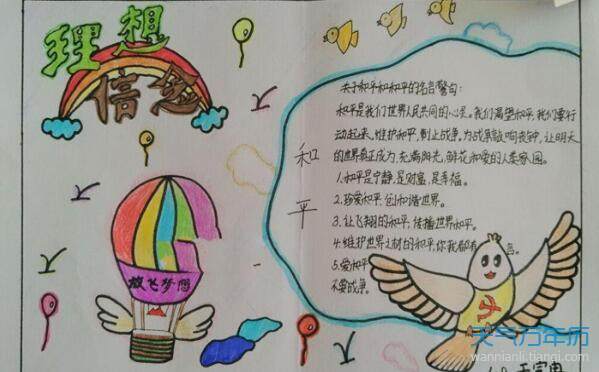 理想
信念
放飞梦想
和
平
关于和平和和平的名言警句:
和平是我们世界人民共同的心灵。我们渴望和平,我们要行
动起来,维护和平,制止战争。为战争敲响丧钟,让明天
的世界真正成为充满阳光,鲜花和爱的人类家园。
1.和平是宁静,是财富,是幸福。
2.珍爱和平,创和谐世界。
3.让飞翔的和平,传播世界和平。
4.维护世界之林的和平,你我都有
5.爱和平
不要战争。
天气万年历
wannianli.tianqi.com